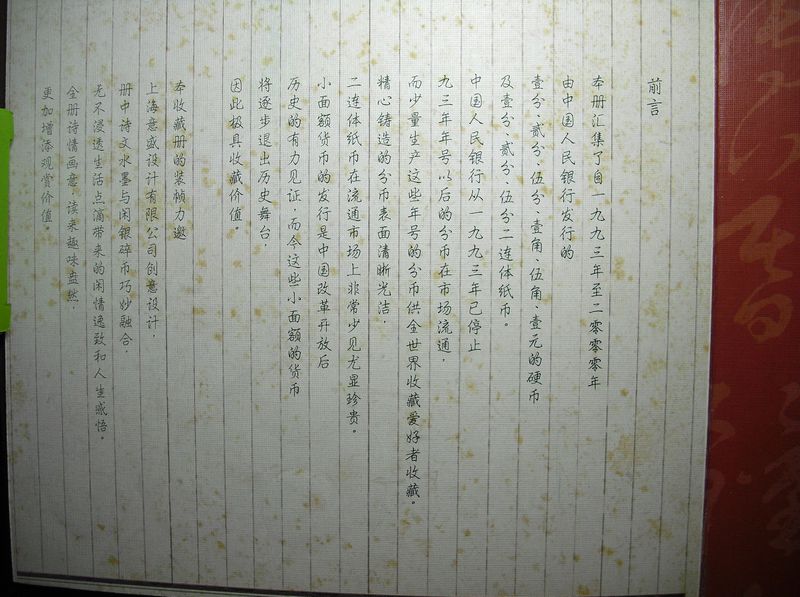 前言
本册汇集了自一九九三年至二零零零年
由中国人民银行发行的
壹分、贰分、伍分、壹角、伍角、壹元的硬币
及壹分、贰分、伍分二连体纸币。
中国人民银行从一九九三年已停止
九三年年号以后的分币在市场流通，
而少量生产这些年号的分币供全世界收藏爱好者收藏。
精心铸造的分币表面清晰光洁，
二连体纸币在流通市场上非常少见尤显珍贵。
小面额货币的发行是中国改革开放后
历史的有力见证，而今这些小面额的货币
将逐步退出历史舞台，
因此极具收藏价值。
本收藏册的装帧力邀
上海意盛设计有限公司创意设计，
册中诗文水墨与闲银碎币巧妙融合，
无不浸透生活点滴带来的闲情逸致和人生感悟。
全册诗情画意，读来趣味盎然，
更加增添观赏价值。